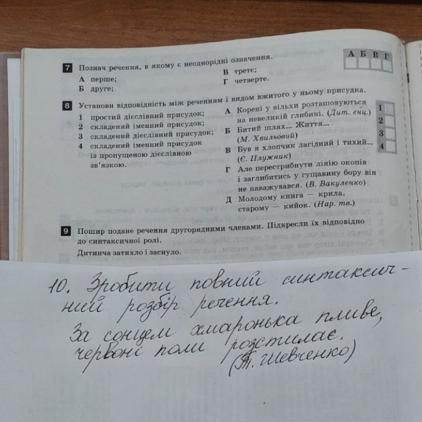 7 Познач речення, в якому є неоднорідні означення.
А Б В Г
А перше; В третє;
Б друге; Г четверте.
8 Установи відповідність між реченням і видом вжитого у ньому присудка.
1 простий дієслівний присудок;
2 складений іменний присудок;
3 складений дієслівний присудок;
4 складений іменний присудок
із пропущеною дієслівною
зв'язкою.
А Корені у вільхи розташовуються
на невеликій глибині. (Дит. енц.)
Б Битий шлях... Життя...
(М. Хвильовий)
В Був я хлопчик лагідний і тихий...
(Є. Плужник)
Г Але перестрибнути лінію окопів
і заглибитись у гущавину бору він
не наважувався. (В. Вакуленко)
Д Молодому книга — крила,
старому — кийок. (Нар. тв.)
1
2
3
4
9 Пошир подане речення другорядними членами. Підкресли їх відповідно
до синтаксичної ролі.
Дитинча затихло і заснуло.
10. Зробити повний синтаксич-
ний розбір речення.
За сонцем хмаронька пливе,
червоні поли розстилає.
(Т. Шевченко)